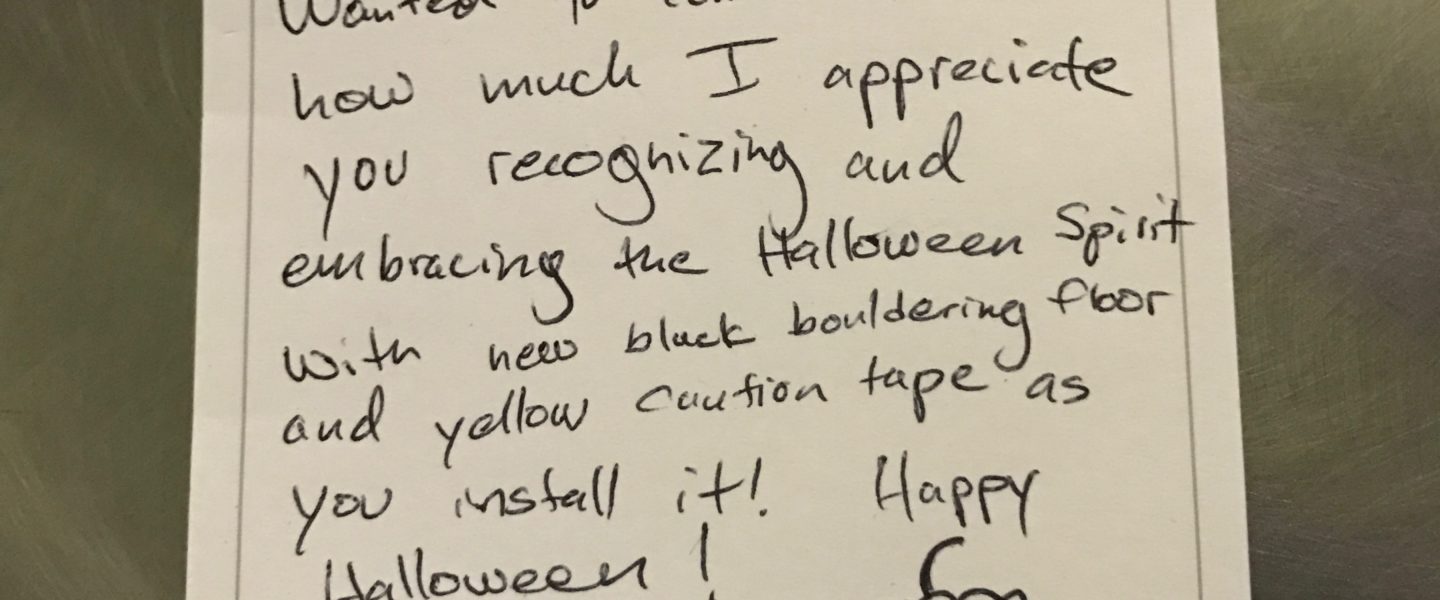 Wanted to
how much I appreciate
you recognizing and
embracing the Halloween Spirit
with new black bouldering floor
and yellow caution tape as
you install it! Happy
Halloween!